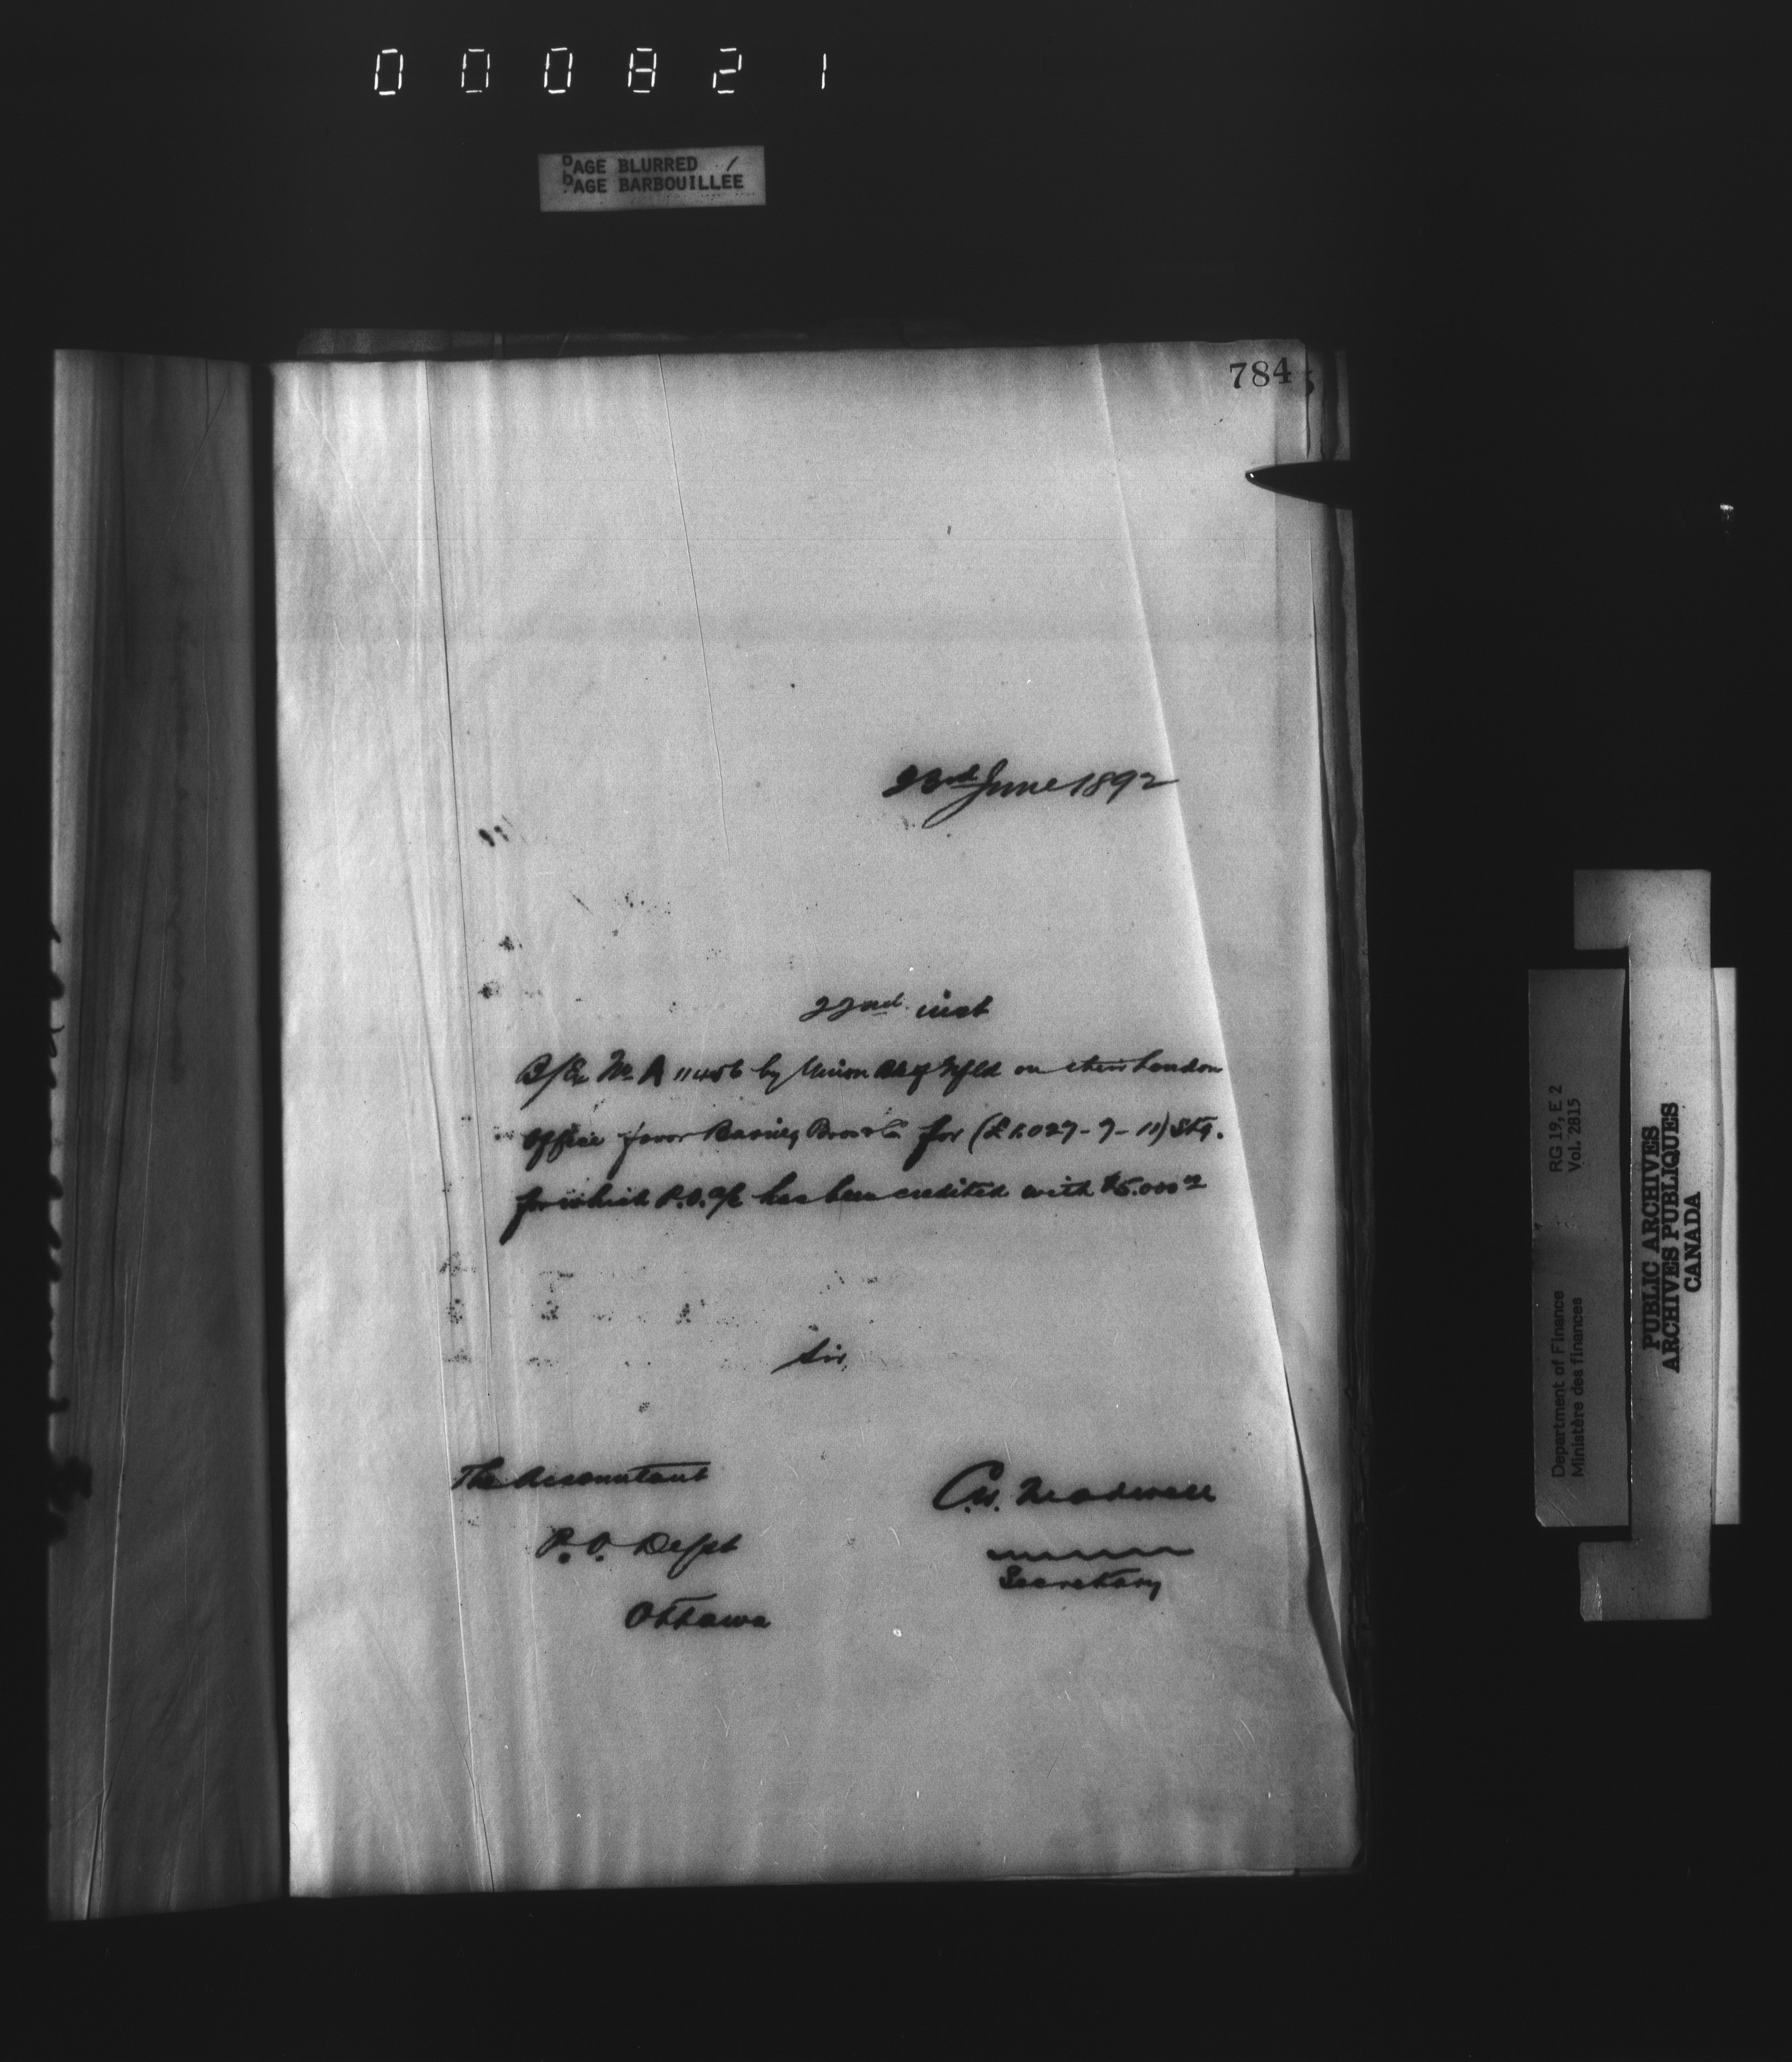 000821
PAGE BLURRED
PAGE BARBOUILLÉE
784
23rd June 1892
22nd inst
B/Ex No. A 11456 by Union Bk of Nfld on their London
Office favor Baring Bros & Co for (£1.027-7-11) Stg.
for which P.O. a/c has been credited with $5.000 00
Sir,
The Accountant
P.O. Dept
Ottawa
C.W. Treadwell
Secretary
RG 19, E 2
Vol. 2815
Department of Finance
Ministère des finances
PUBLIC ARCHIVES
ARCHIVES PUBLIQUES
CANADA